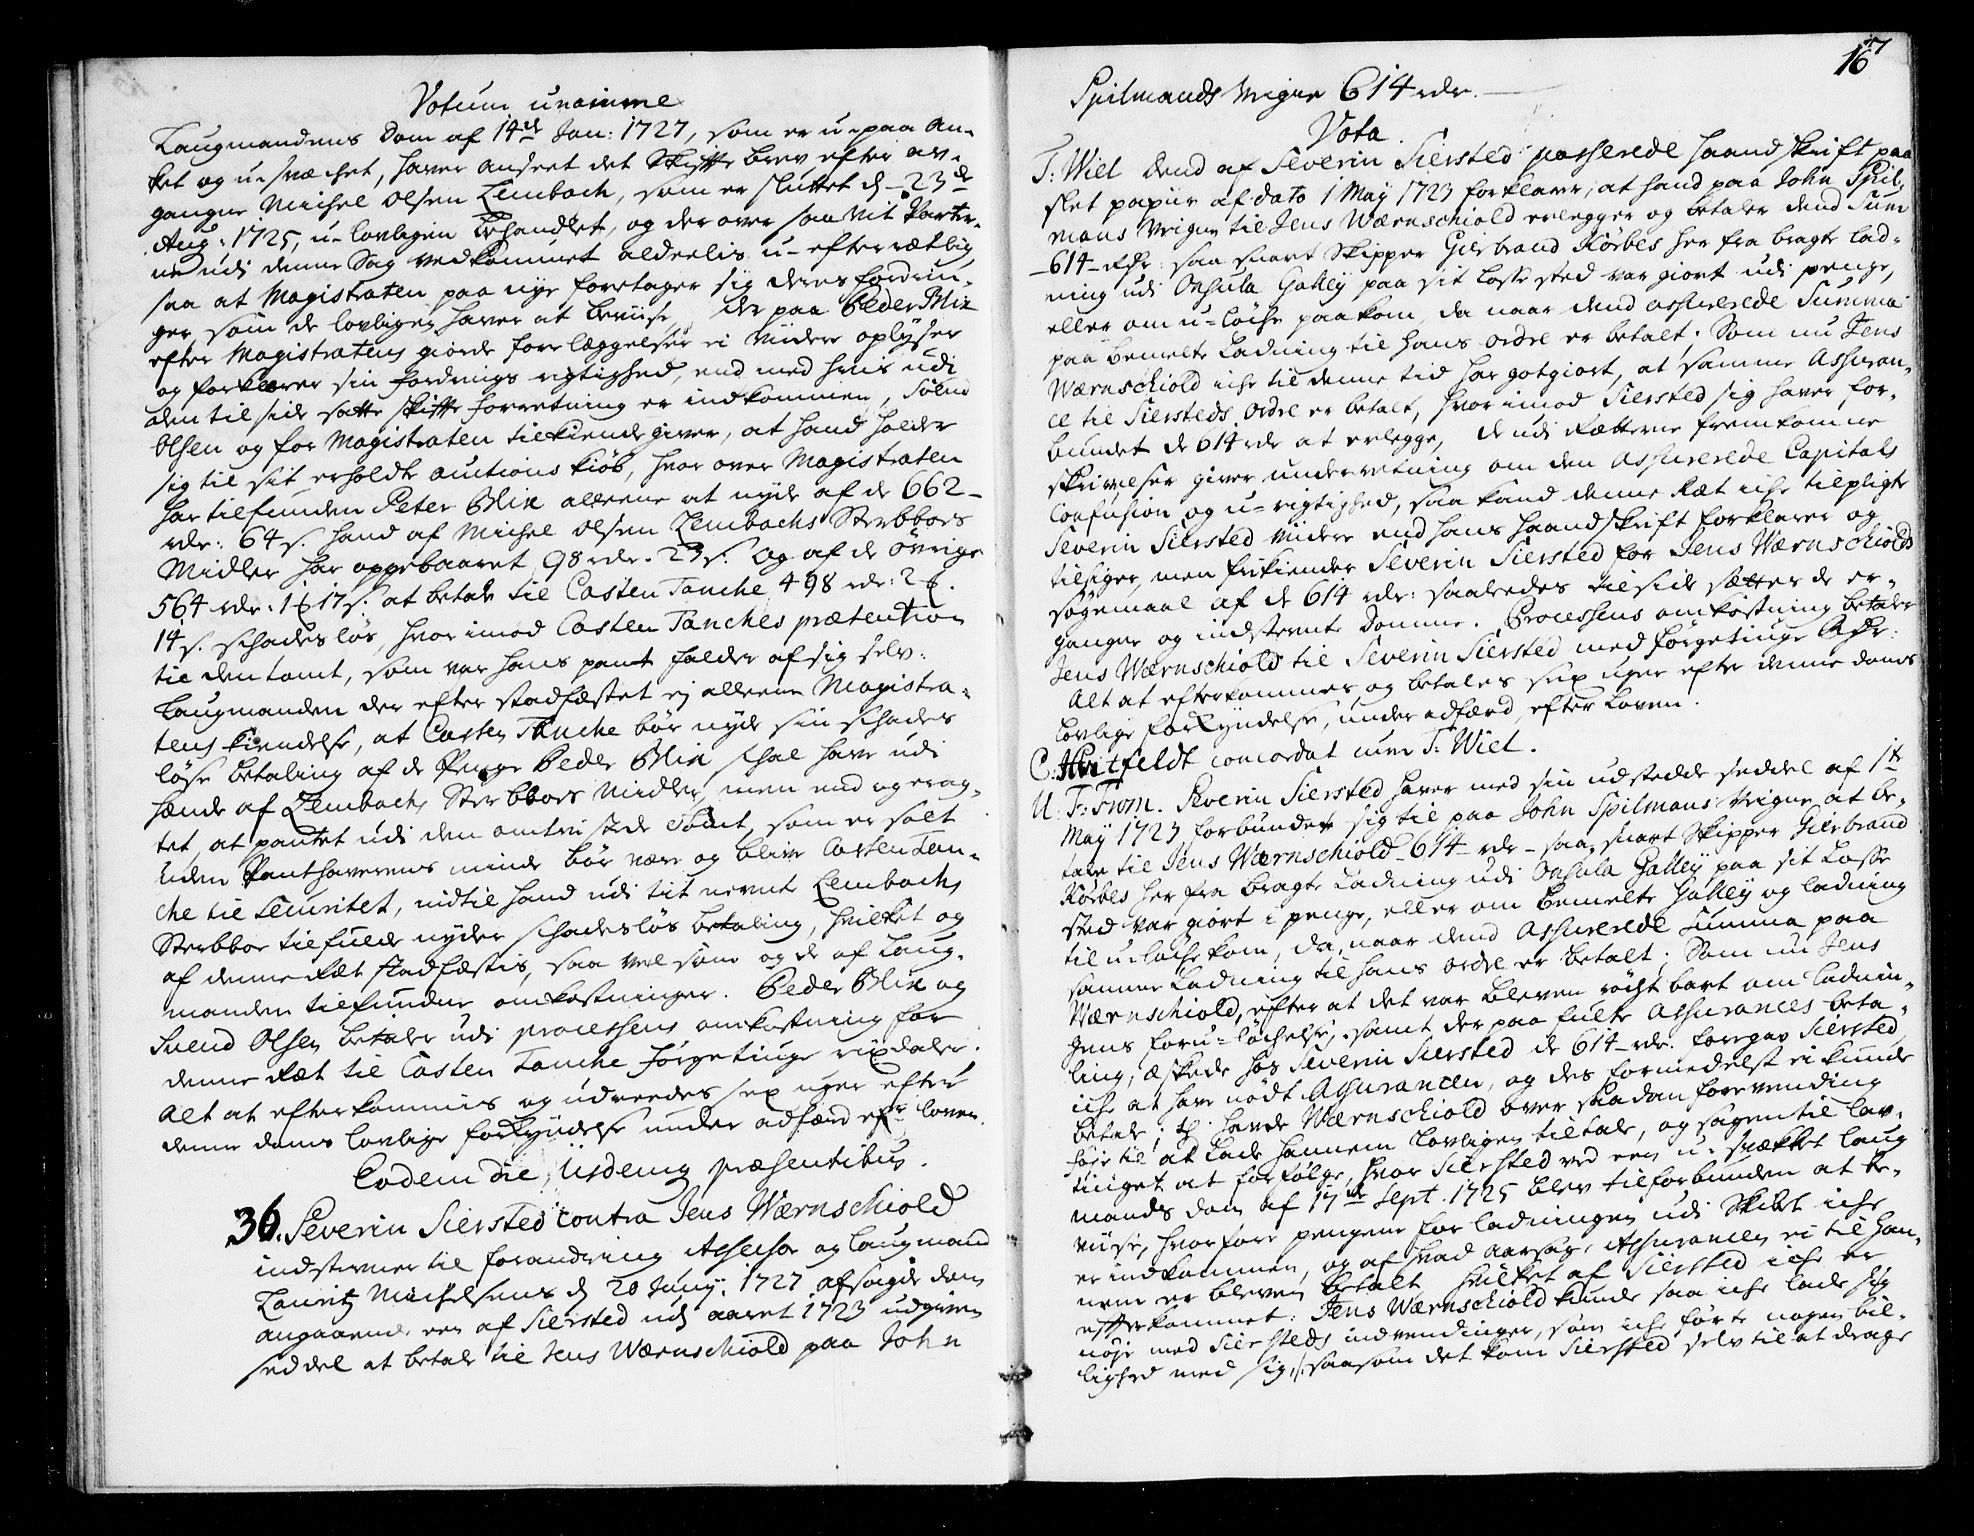 Votum unanime
Laugmandens Dom af 14de Jan: 1727, som er u-paa an-
ket og u-svæchet, haver anseet det Skiftebrev efter av-
gangne Michel Olsen Lembach, som er sluttet d. 23de
Aug: 1725, u-lovligen behandlet, og der over saa vit Parter-
ne udi denne Sag vedkommet aldeelis u-efterrætlig,
saa at Magistraten paa nye foretager sig deres fordrin-
ger som de lovligen haver at beviise, der paa Peder Blix
efter Magistratens giorde forelæggelser ei viidere oplyser
og forklarer sin fordrings rigtighed, end med hvis udi
den til side satte skifte forretning er indkommen, Svend
Olsen og for Magistraten tilkiendegiver, at hand holder
sig til sit erholdte auctions kiøb, hvor over Magistraten
har tilfunden Peter Blix alleene at nyde af de 662-
rdr: 64 s. hand af Michel Olsen Lembachs Sterbboes
Midler har oppebaaret 98 rdr. 23 s. og af de øvrige
564 rdr: 1 ₰ 17 s. at betale til Casten Tanche 498 rdr: 2 ₰.
14 s. schadesløs, hvor imod Casten Tanches prætention
til den tomt, som var hans pant falder af sig selv.
Laugmanden der efter stadfæstet ej alleene Magistra-
tens kiendelse, at Casten Tanche bør nyde sin schades
løse betaling af de Penge Peder Blix schal have udi
hænde af Lembachs Sterbboes Midler, men end og erag-
tet, at pantet udi den omtvistede Tomt, som er solt
uden Panthaverens minde bør være og blive Casten Tan-
che til Securitet, indtil hand udi tit nevnte Lembachs
Sterbboe tilfulde nyder schadesløs betaling, hvilket og
af denne Ræt stadfæstis, saa vel som og de af Laug-
manden tilfundne omkostninger. Peder Blix og
Svend Olsen betaler udi processens omkostning for
denne Ræt til Casten Tanche førgetiuge rixdaler.
Alt at efterkommis og udreedes sex uger efter
denne doms lovlige forkyndelse under adfærd eftr loven.
Eodem die, iisdemq præsentibus.
36. Severin Siersted contra Jens Wærnschiold
indstevner til forandring Assessor og Laugmand
Lauritz Michelsens d. 20 Juny. 1727 afsagde dom
angaaende een af Siersted udj aaret 1723 udgiven
seddel at betale til Jens Wærnschiold paa John
167
Spilmands vegne 614 rdr.
Vota.
T: Wiel dend af Severin Siersted passerede haandskrift paa
slet papiir af dato 1 May 1723 forklarer, at hand paa John Spil-
mans vegne til Jens Wærnschiold erlegger og betaler dend Sum
-614- Rdr: saa snart Skipper Gierbrand Kørbes her fra bragte lad-
ning udi Onsula Galley paa sit losse sted var giort udi penge,
eller om u-løche paakom, da naar dend assurerede Summa
paa bemelte Ladning til hans ordre er betalt; Som nu Jens
Wærnschiold iche til denne tid har gotgiort, at samme Assuran-
ce til Siersteds ordre er betalt, hvor imod Siersted sig haver for-
bundet de 614 rdr at erlegge, de udi Rætterne fremkomne
skrivelser giver underretning om den assurerede Capitals
Confusion og u-rigtighed, saa kand denne Ræt iche tilpligte
Severin Siersted viidere end hans haandskrift forklarer og
tilsiger, men frikiender Severin Siersted for Jens Wærnschiolds
søgemaal af de 614 rdr: saaledes til side sætter de er-
gangne og indstevnte Domme. Processens omkostning betaler
Jens Wærnschiold til Severin Siersted med førgetiuge Rdr:
Alt at efterkommes og betales sex uger efter denne doms
lovlige forkyndelse, under adfærd efter Loven.
C: Hvitfeldt concordat cum T: Wiel.
U. F: From. Severin Siersted haver med sin udstedde seddel af 1te
May 1723 forbundet sig til paa John Spilmans vegne at be-
tale til Jens Wærnschiold -614- rdr - saa snart Skipper Gierbrand
Kørbes her fra bragte Ladning udi Onsula Galley paa sit Losse
sted var giort i penge, eller om bemelte Galley og ladning
til u-løche kom, da, naar dend Assurerede Summa paa
samme Ladning til hans ordre er betalt; Som nu Jens
Wærnschiold, efter at det var bleven røgtbart om ladnin-
gens foru-løchelse, samt der paa fulte Assurances beta-
ling, æskede hos Severin Siersted de 614- rdr. foregav Siersted
iche at have nødt Assurancen, og des formedelst ei kunde
betale; th. havde Wærnschiold over saadan forevending
føie til at lade hannem lovligen tiltale, og sagen til lav-
tinget at forfølge, hvor Siersted ved een u-svækket laug
mands dom af 17de Sept. 1725 blev tilforbunden at be-
viise, hvorfore pengene for ladningen udi Skibet iche
er indkommen, og af hvad aarsag, Assurancen ei til han-
nem er bleven betalt, hvilket af Siersted iche er
efterkommet: Jens Wærnschiold kunde saa iche lade sig
nøje med Siersteds indvendinger, som iche førte nogen bil-
lighed med sig, saasom det kom Siersted selv til at drage